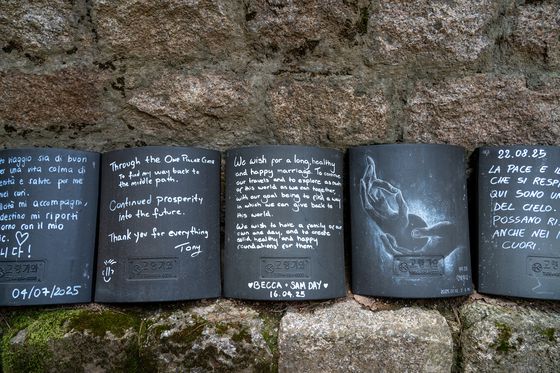 viaggio sia di buon
per una vita colma di
e salute per me
miei cari.
mi accompagni,
destino mi riporti
con il mio
♡
니다!
04/07/2025
고령기와
Through the One Pillar Gate
To find my way back to
the middle path.
Continued prosperity
into the future.
Thank you for everything
Tony
고령기와
We wish for a long, healthy
and happy marriage. To continue
our travels and to explore as much
of this world as we can together
with our goal being to find a way
in which we can give back to
this world.
We wish to have a family of our
own one day, and to create
solid, healthy and happy
foundations for them.
고령기와
♥ BECCA + SAM DAY ♥
16.04.25
고령기와
22.08.25
LA PACE
CHE SI RESPI
QUI SONO UN
DEL CIELO.
POSSANO
ANCHE NEI
CUORI.
고령기와